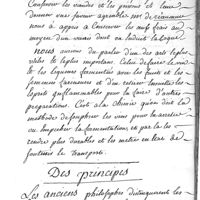 Conserver les viandes et les poissons et leur
donner une saveur agreable
nous a appris a Conserver les oeufs frais au
moyen d'un vernis dont on Enduit la Coque
nous avons du parler d'un des arts les plus
utiles le plus important. Celui de faire le vin
et les liqueurs fermentées avec les fruits et les
semences farineuses et d'en retirer ensuite les
Esprits inflammables pour la faire d'autres
preparations. C'est a la Chimie qu'on doit la
methode de souphrer les vins pour les arreter
ou Empecher la fermentation, et par la les
rendre plus durables et les mettre en état de
soutenir le transport.
Des principes
Les anciens philosophes distinguerent les